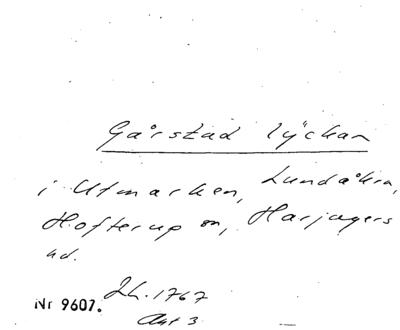 Gårstad lyckan
i Utmarken, Lundåkra,
Hofterup sn, Harjagers
hd.
Lh. 1767
Nr 9607.
Akt 3